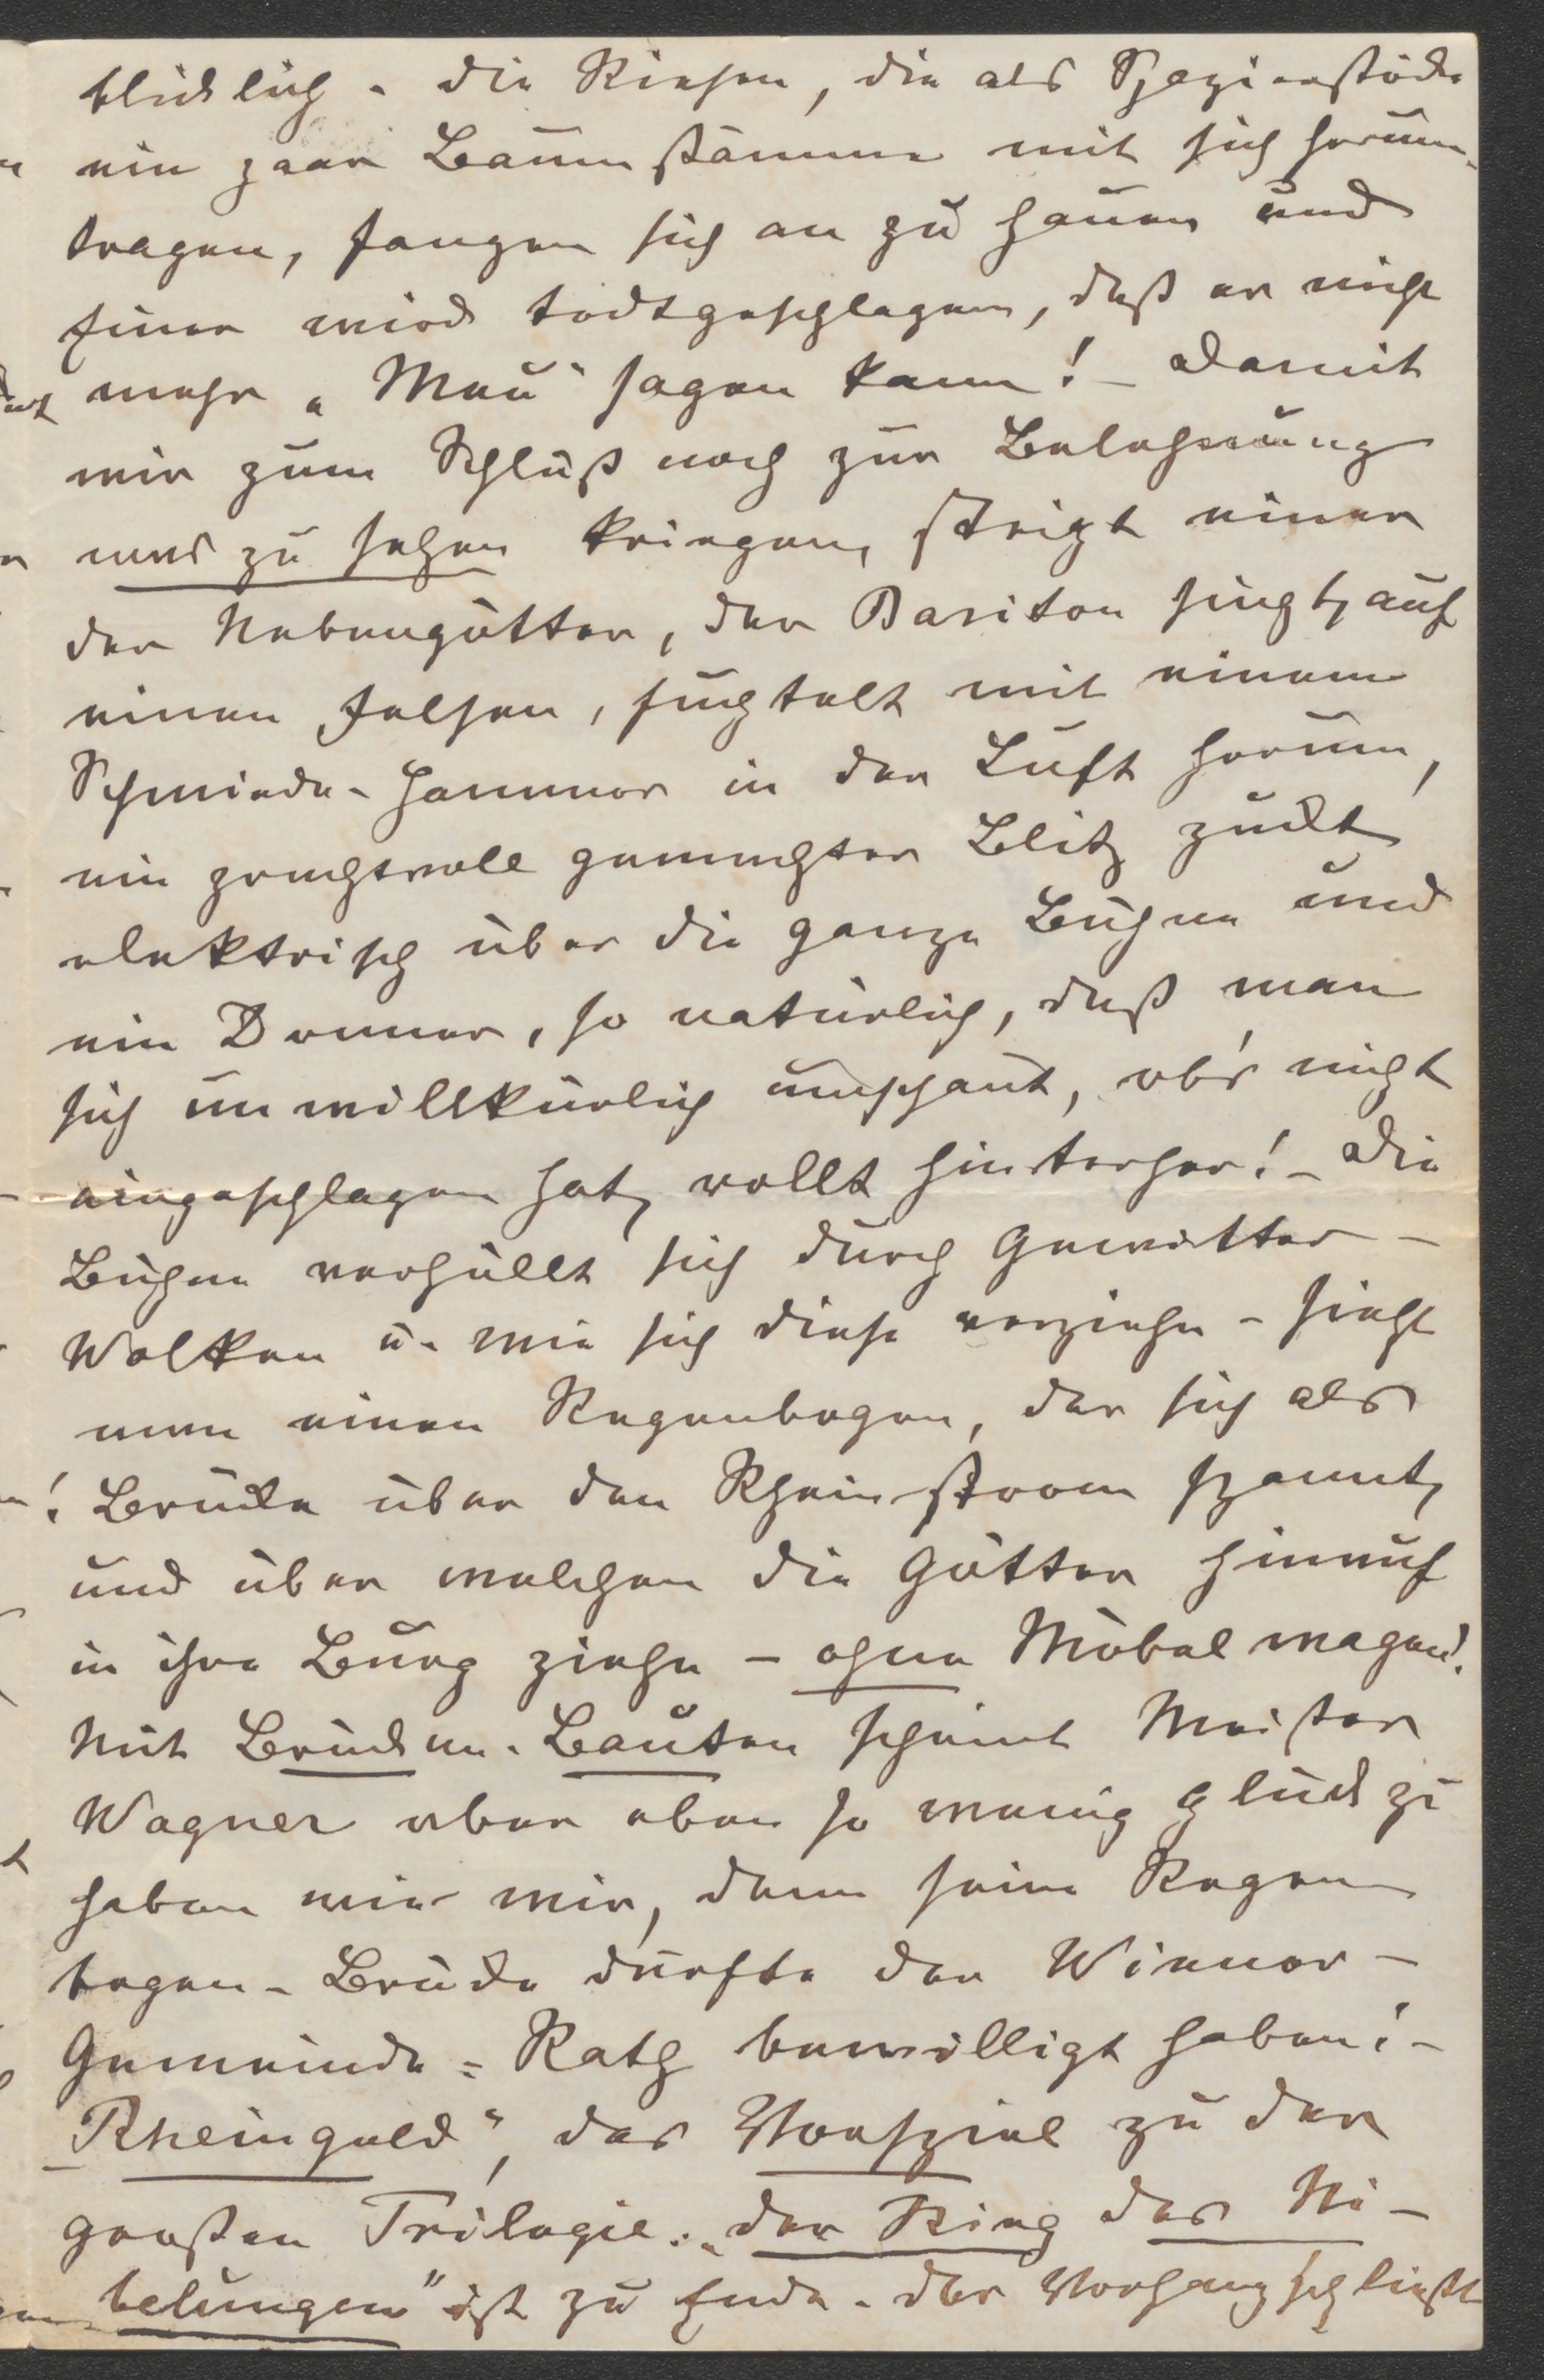 blicklich. die Riesen, die als Spazierstöcke
ein paar Baumstämme mit sich herum-
tragen, fangen sich an zu hauen und
Einer wird todtgeschlagen, daß er nicht
mehr „Mau“ sagen kann! – Damit
wir zum Schluß noch zur Belohnung
was zu sehen kriegen, steigt einer
der Nebengötter, der Bariton singt, auf
einen Felsen, fuchtelt mit einem
Schmiede-Hammer in der Luft herum,
ein prachtvoll gemachter Blitz zuckt
elektrisch über die ganze Bühne und
ein Donner, so natürlich, daß man
sich unwillkürlich umschaut, ob's nicht
eingeschlagen hat, rollt hinterher! – Die
Bühne verhüllt sich durch Gewitter-
Wolken u. wie sich diese verziehn – sieht
man einen Regenbogen, der sich als
Brücke über den Rheinstrom spannt,
und über welchen die Götter hinauf
in ihre Burg ziehn – ohne Möbelwagen!
Mit Brücken-Bauten scheint Meister
Wagner aber eben so wenig Glück zu
haben wie wir, denn seine Regen
bogen-Brücke dürfte der Wiener-
Gemeinde=Rath bewilligt haben! –
„Rheingold“, das Vorspiel zu der
großen Trilogie: „der Ring des Ni-
belungen“ ist zu Ende. der Vorhang schließt